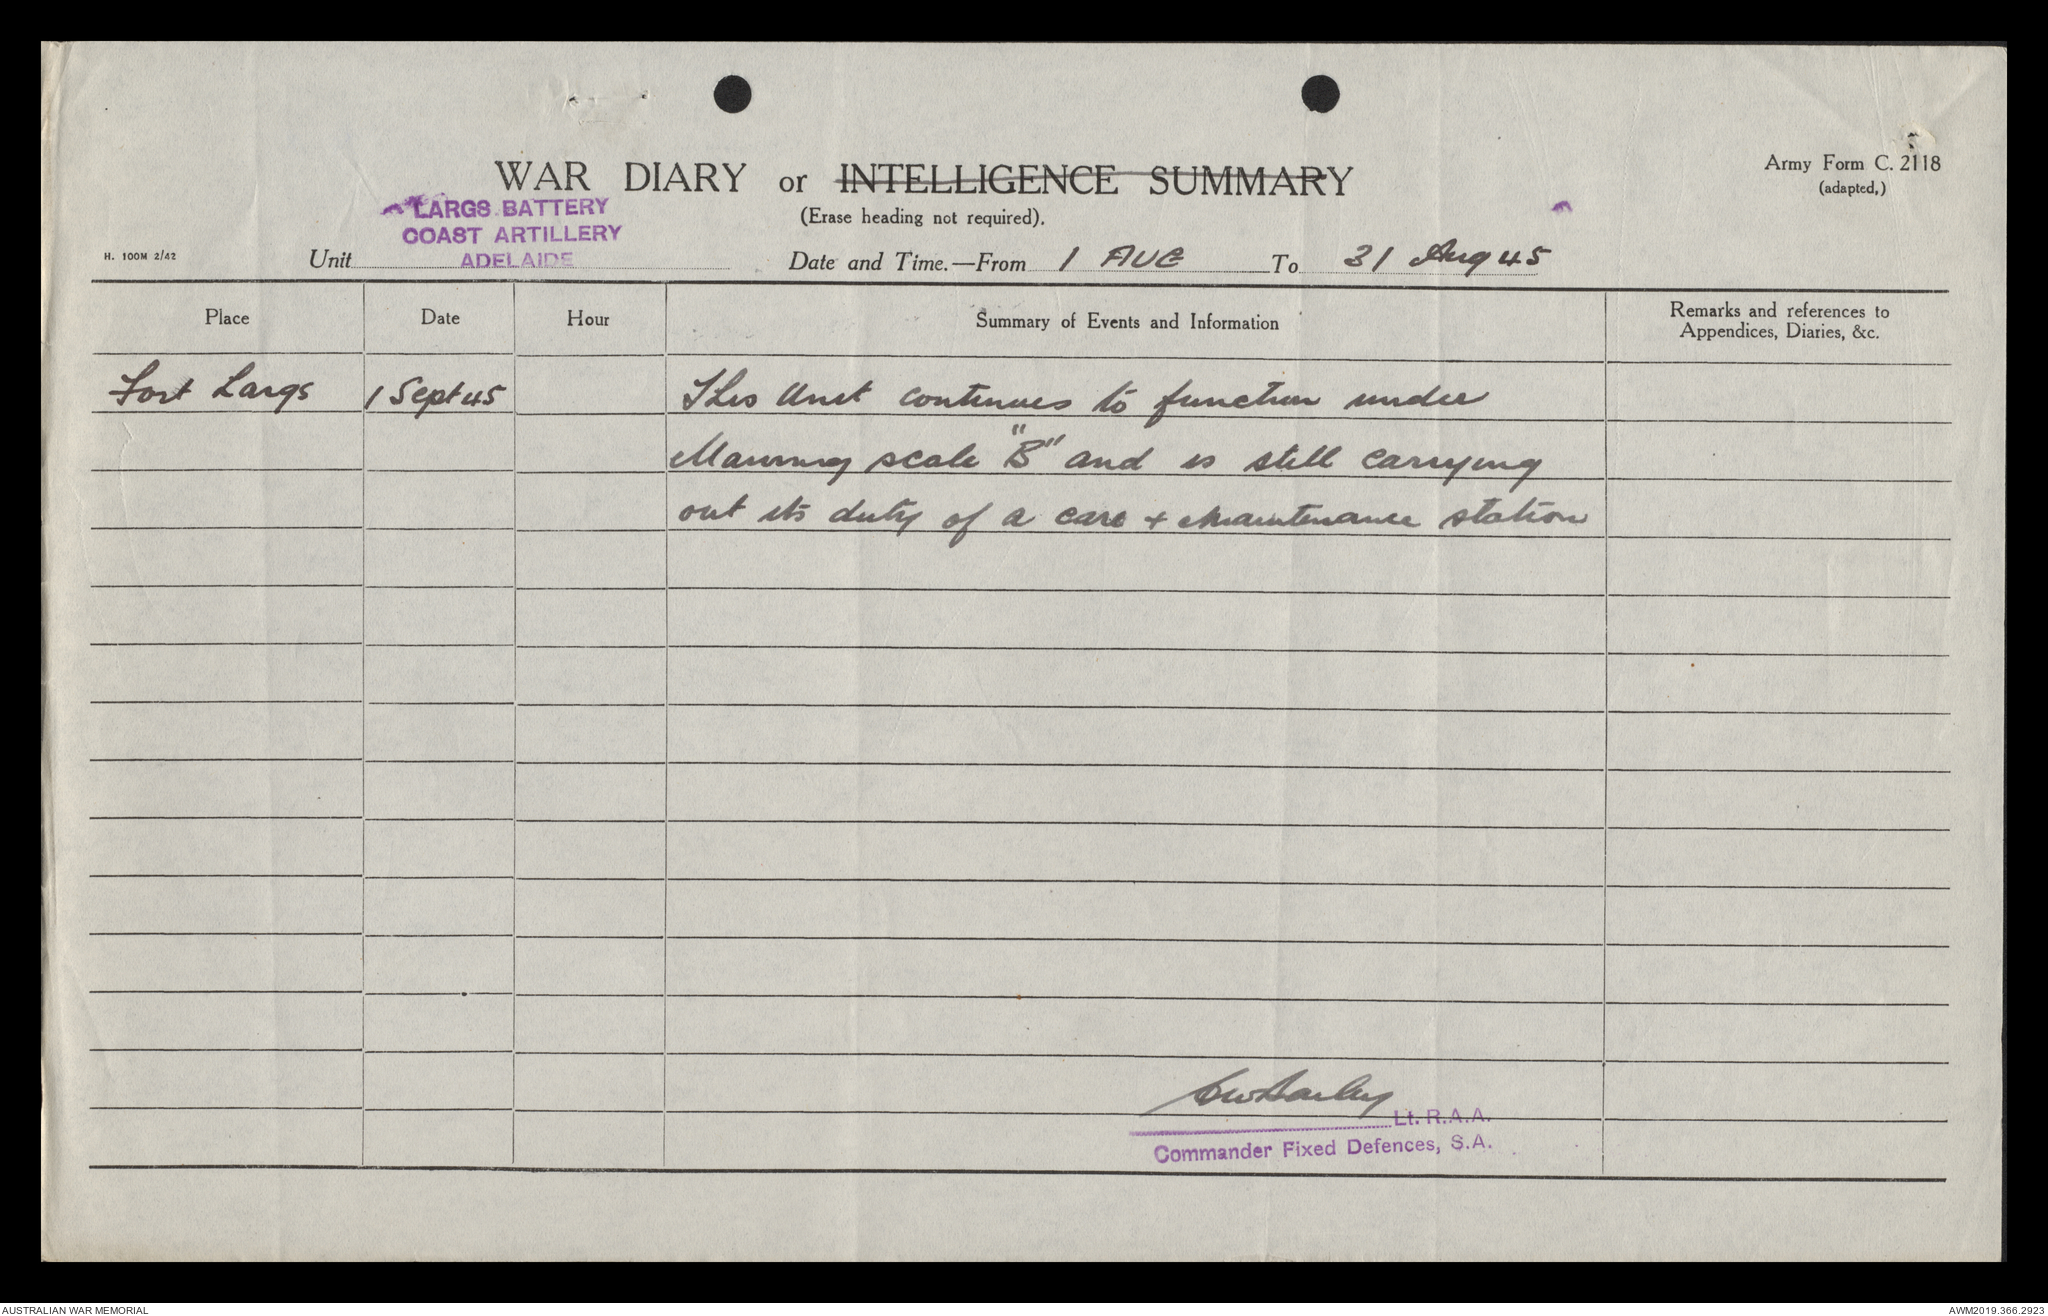 WAR DIARY or INTELLIGENCE SUMMARY
Army Form C. 2118
(adapted,)
(Erase heading not required).
LARGS BATTERY
COAST ARTILLERY
ADELAIDE
H. 100M 2/42
Unit
Date and Time.—From 1 AUG To 31 Aug 45
Place Date Hour Summary of Events and Information Remarks and references to
Appendices, Diaries, &c.
Fort Largs 1 Sept 45 This Unit continues to function under
Manning scale "B" and is still carrying
out its duty of a care + maintenance station
Lt. R.A.A.
Commander Fixed Defences, S.A.
AUSTRALIAN WAR MEMORIAL
AWM2019.366.2923